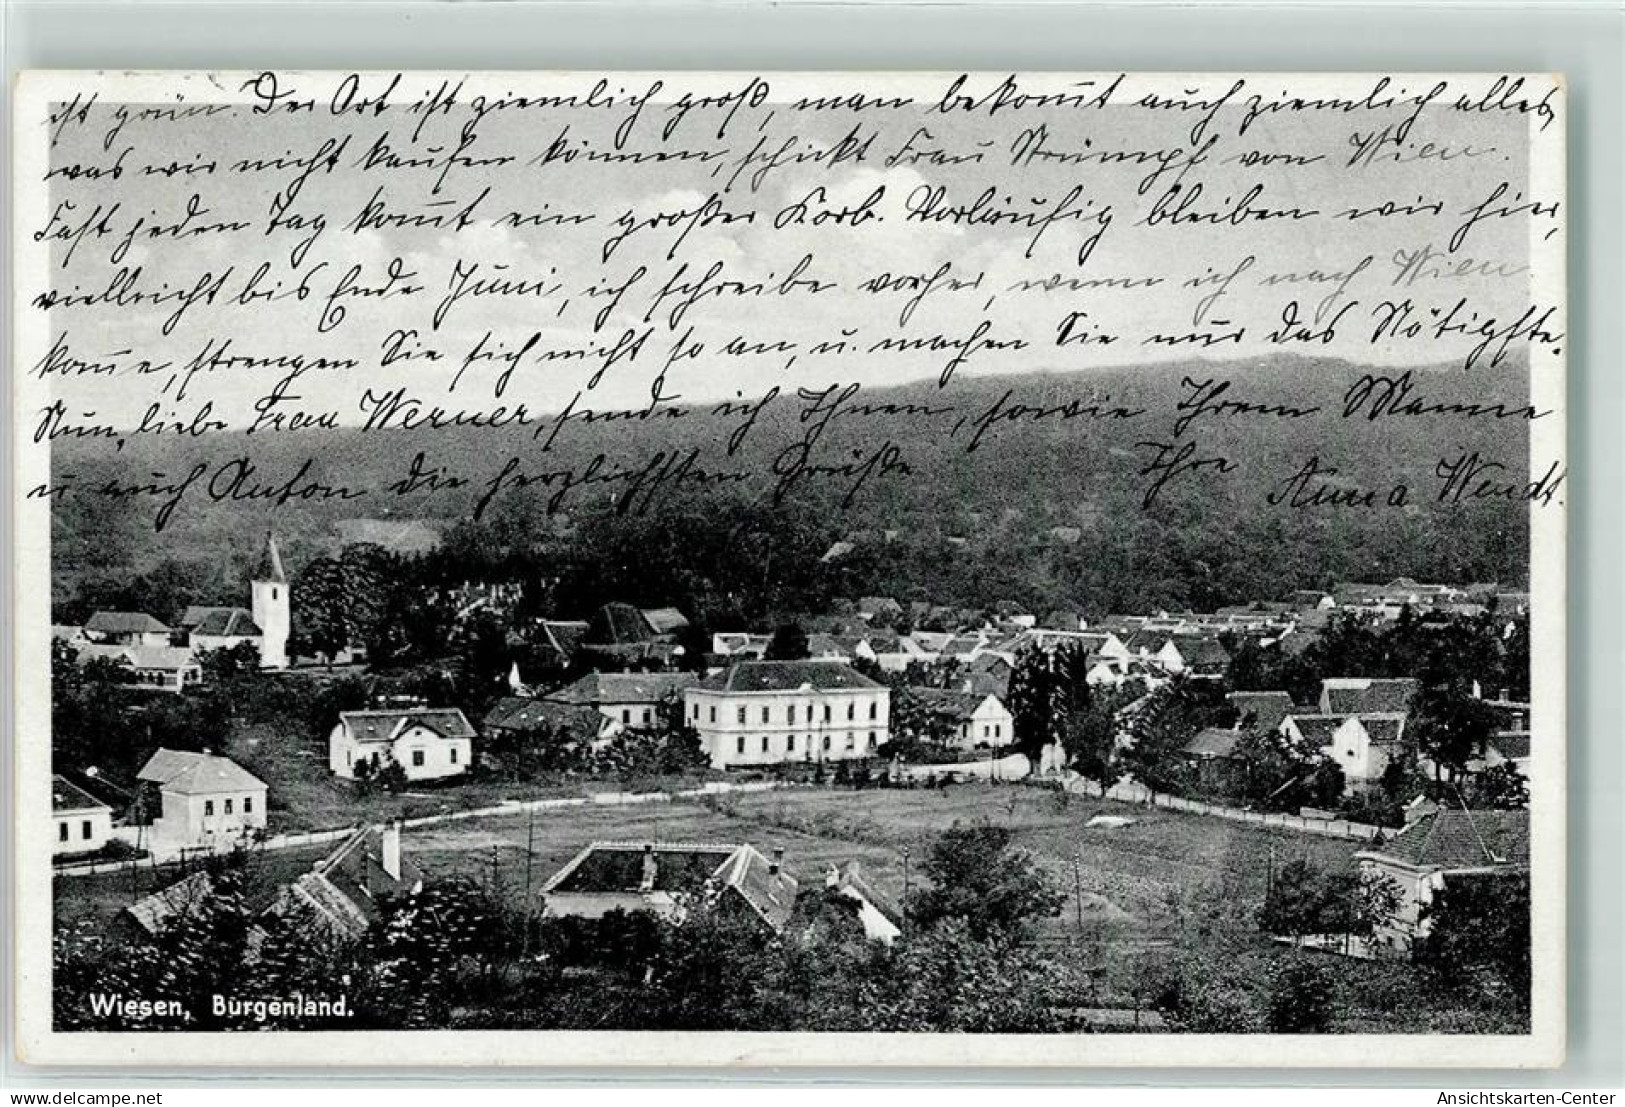 ist grün. Der Ort ist ziemlich groß, man bekom̅t auch ziemlich alles,
was wir nicht kaufen können, schickt Frau Strümpf von Wien.
Fast jeden Tag kom̅t ein großer Korb. Vorläufig bleiben wir hier,
vielleicht bis Ende Juni, ich schreibe vorher, wenn ich nach Wien
kom̅e, strengen Sie sich nicht so an, u. machen Sie nur das Nötigste.
Nun, liebe Frau Werner, sende ich Ihnen, sowie Ihrem Manne
u. auch Anton die herzlichsten Grüße Ihre Anna Wendt.
Wiesen, Burgenland.
www.delcampe.net
Ansichtskarten-Center